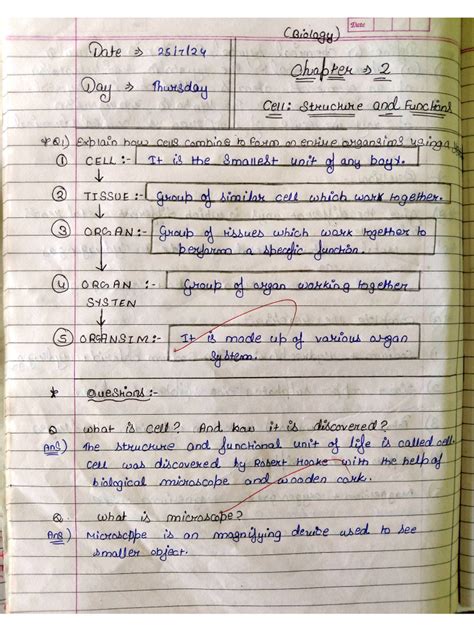 Date
(Biology)
Date → 25/7/24
Chapter → 2
Day → Thursday
Cell: Structure and Functions
* Q1) Explain how cells combine to form an entire organsims using a
① CELL :- It is the smallest unit of any body.
② TISSUE :- Group of similar cell which work together.
③ ORGAN :- Group of tissues which work together to
perform a specific function.
④ ORGAN :- Group of organ working together
SYSTEN
⑤ ORGANSIM:- It is made up of various organ
System.
* Questions:-
Q What is cell? And how it is discovered?
Ans) The structure and functional unit of life is called cell.
Cell was discovered by Robert Hooke with the help of
biological microscope and wooden cork.
Q. What is microscope?
Ans) Microscope is an magnifying device used to see
smaller object.